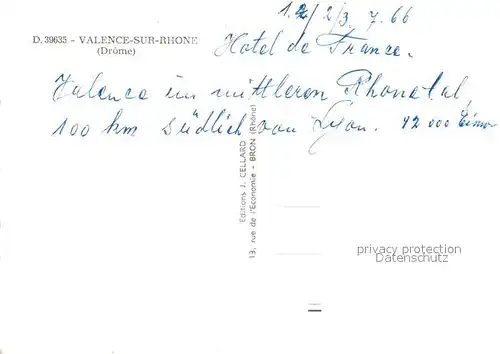 1./2/3. 7. 66
D. 39635 - VALENCE-SUR-RHONE
(Drôme)
Hotel de France.
Valence im mittleren Rhonetal,
100 km südlich von Lyon. 42 000 Einw.
Editions J. CELLARD
13, rue de l'Economie - BRON (Rhône)
privacy protection
Datenschutz